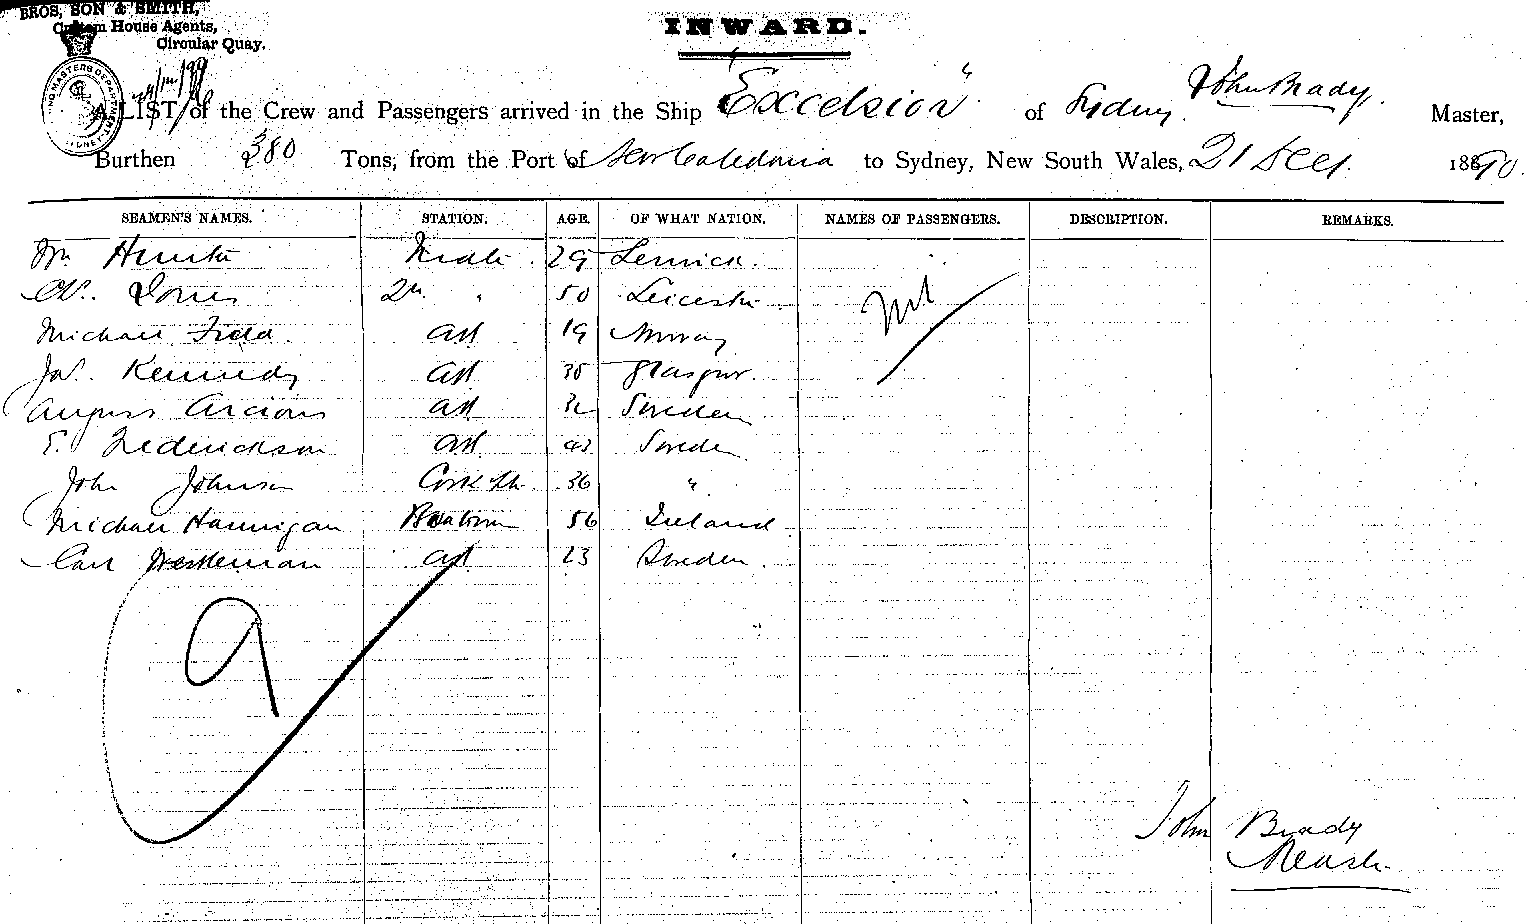 BROS, SON & SMITH,
Custom House Agents,
Circular Quay.
INWARD.
A LIST of the Crew and Passengers arrived in the Ship "Excelsior" of Sydney John Brady. Master,
Burthen 380 Tons, from the Port of New Caledonia to Sydney, New South Wales, 21 Dec. 1890.
SEAMEN'S NAMES. STATION. AGE. OF WHAT NATION. NAMES OF PASSENGERS. DESCRIPTION. REMARKS.
Wm Hunter Mate 29 Lerwick. Nil
W. Jones 2nd " 50 Leicester
Michael Field AB 19 Moray
Jas. Kennedy AB 35 Glasgow.
August AB Sweden
E. Frederickson AB 43 Sweden
John Johnson Cook &c 36 "
Michael Hannigan 56 Ireland
Carl Westleman AB 23 Sweden
9
John Brady
Master